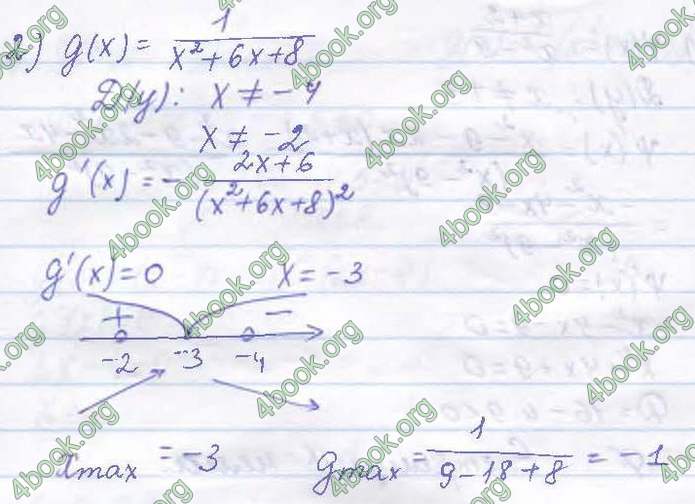 2) g(x) = 1/(x²+6x+8)
D(y): x ≠ -4
x ≠ -2
g'(x) = - (2x+6)/(x²+6x+8)²
g'(x) = 0 x = -3
+ -
-2 -3 -4
xmax = -3 gmax = 1/(9-18+8) = -1
4book.org